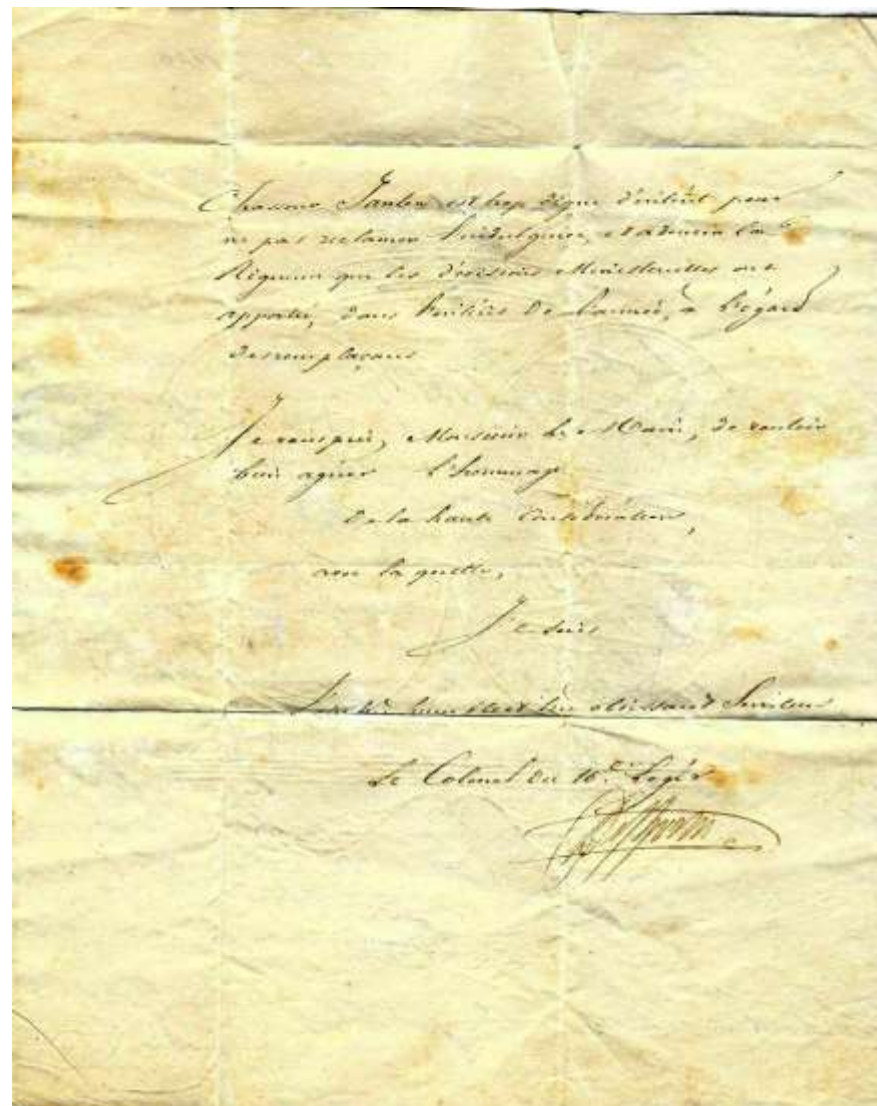 Chasseur Janten est trop digne d'intérêt pour
ne pas réclamer l'indulgence, et adoucir la
Rigueur que les décisions Ministerielles ont
apporté, dans de l'année, à l'égard
des remplaçans
Je vous prie, Monsieur le Maire, de vouloir
bien agréer l'hommage
de la haute Considération,
avec la quelle,
Je suis
humble et très obéissant Serviteur
Le Colonel du 16e Léger